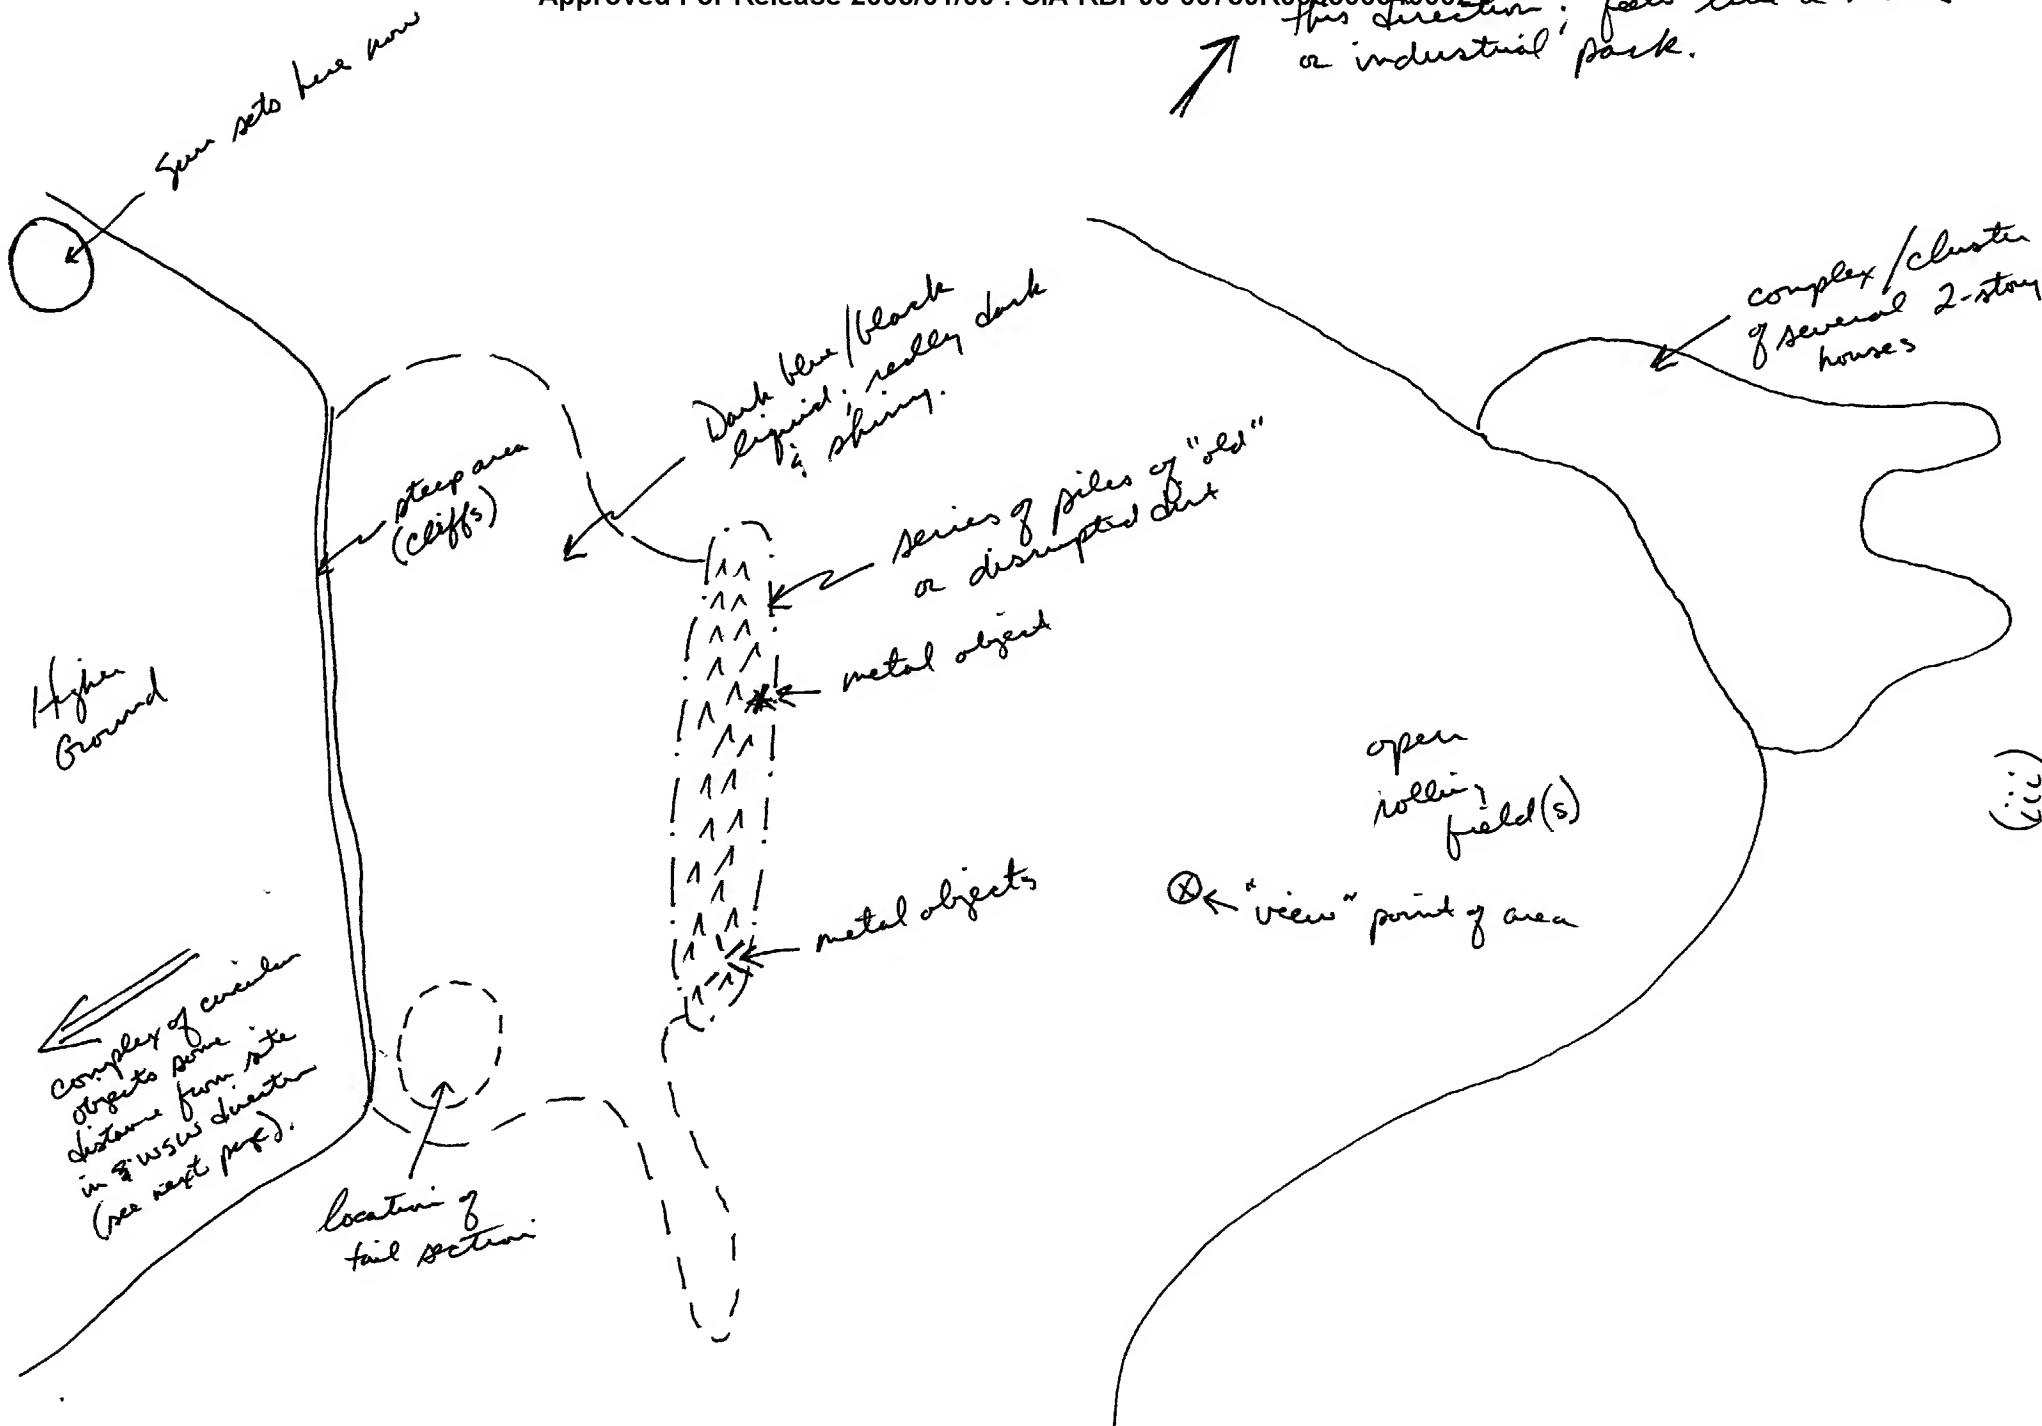 Approved For Release
this direction; feels like a
or industrial park.
Sun sets here now
complex/cluster
of several 2-story
houses
Dark blue/black
liquid; really dark
& shiny.
steep area
(cliffs)
series of piles of "old"
or disrupted dirt
metal object
Higher
Ground
open
rolling
field(s)
metal objects
"view" point of area
complex of circular
objects some
distance from site
in WSW direction
(see next page).
location of
tail section